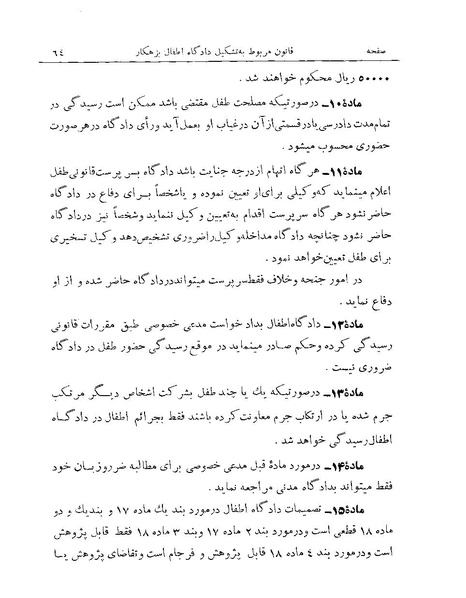 صفحه قانون مربوط به تشکیل دادگاه اطفال بزهکار ٦٤
٥٠٠٠٠ ریال محکوم خواهند شد .
مادۀ۱۰ـ درصورتیکه مصلحت طفل مقتضی باشد ممکن است رسیدگی در
تمام مدت دادرسی یا درقسمتی از آن درغیاب او بعمل آید ورأی دادگاه درهرصورت
حضوری محسوب میشود .
مادۀ۱۱ـ هرگاه اتهام از درجه جنایت باشد دادگاه بسرپرست قانونی طفل
اعلام مینماید که وکیلی برای او تعیین نموده و یا شخصاً بـرای دفاع در دادگاه
حاضر نشود هرگاه سرپرست اقدام به تعیین وکیل ننماید وشخصاً نیز دردادگاه
حاضر نشود چنانچه دادگاه مداخله وکیل را ضروری تشخیص دهد وکیل تسخیری
برای طفل تعیین خواهد نمود .
در امور جنحه وخلاف فقط سرپرست میتواند دردادگاه حاضر شده و از او
دفاع نماید .
مادۀ۱۲ـ دادگاه اطفال بدادخواست مدعی خصوصی طبق مقررات قانونی
رسیدگی کرده وحکم صادر مینماید در موقع رسیدگی حضور طفل در دادگاه
ضروری نیست .
مادۀ۱۳ـ درصورتیکه یك یا چند طفل بشرکت اشخاص دیگر مرتکب
جرم شده یا در ارتکاب جرم معاونت کرده باشند فقط بجرائم اطفال در دادگاه
اطفال رسیدگی خواهد شد .
مادۀ۱۴ـ درمورد مادۀ قبل مدعی خصوصی برای مطالبه ضرروزیـان خود
فقط میتواند بدادگاه مدنی مراجعه نماید .
مادۀ۱۵ـ تصمیمات دادگاه اطفال درمورد بند یك ماده ۱۷ و بندیك و دو
ماده ۱۸ قطعی است ودرمورد بند ۲ ماده ۱۷ وبند ۳ ماده ۱۸ فقط قابل پژوهش
است ودرمورد بند ٤ ماده ۱۸ قابل پژوهش و فرجام است وتقاضای پژوهش یـا